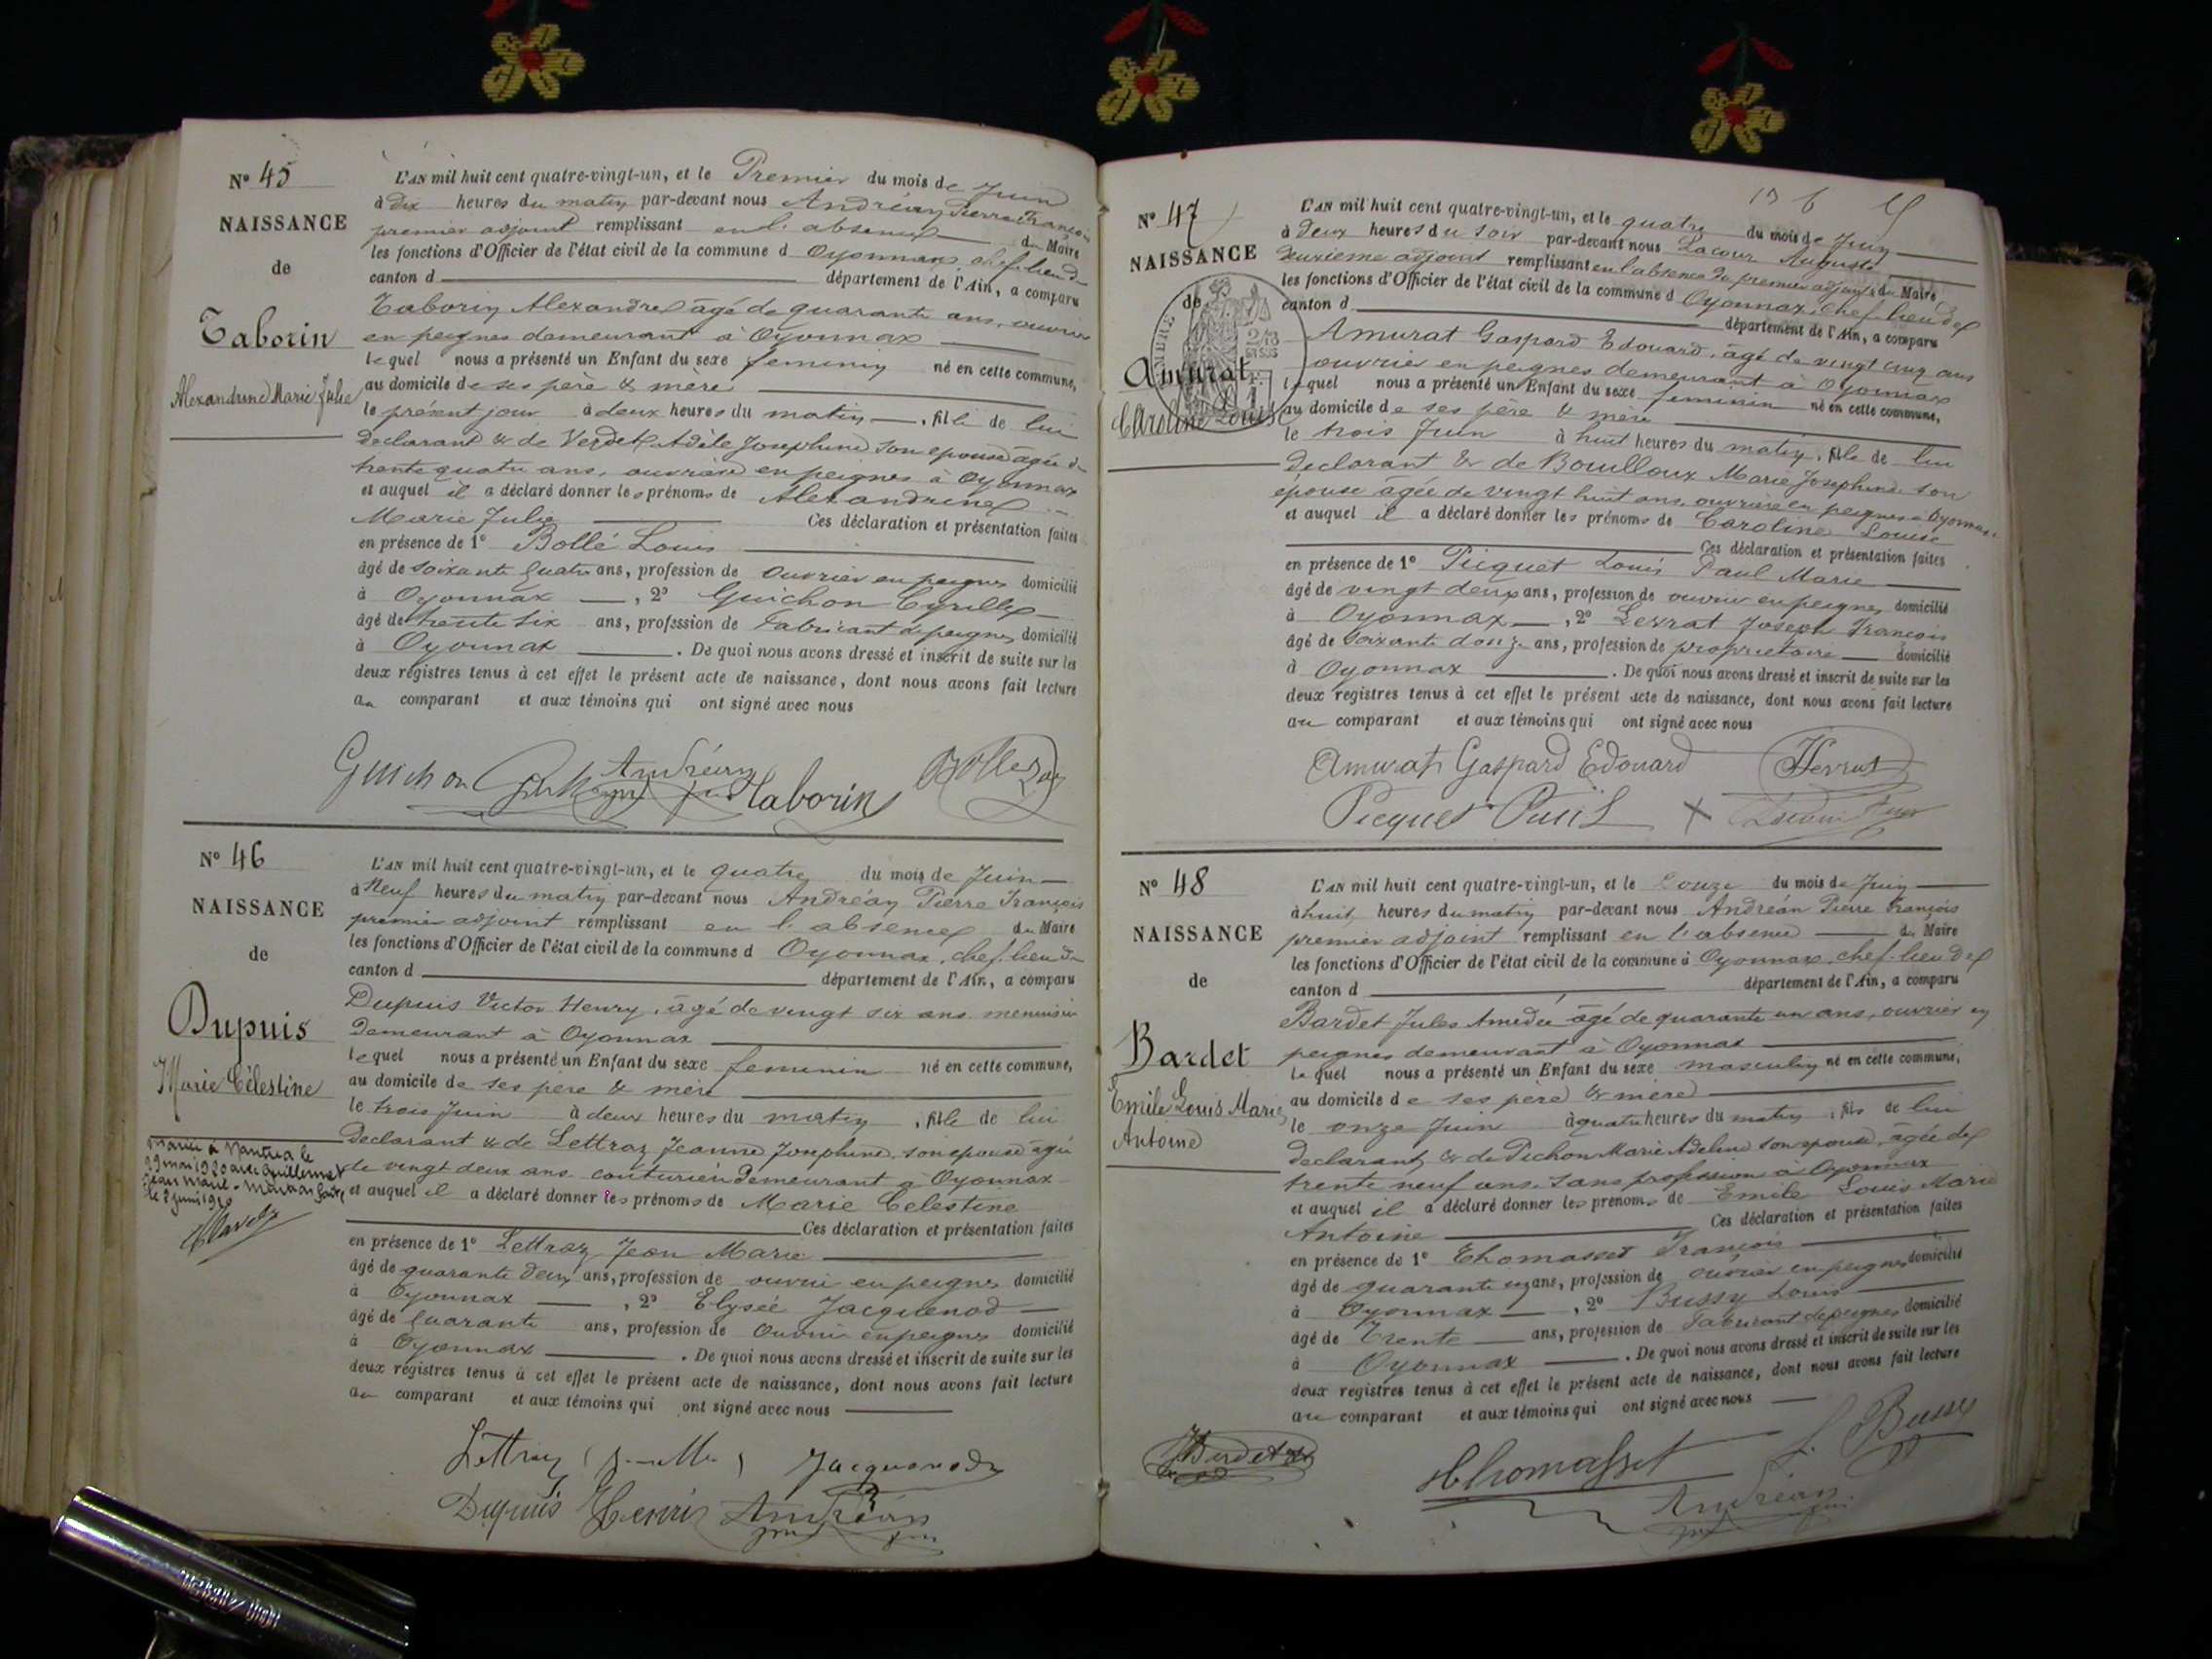 Nº 45
NAISSANCE
de
Taborin
Alexandrine Marie Julie
L'AN mil huit cent quatre-vingt-un, et le Premier du mois de Juin
à Dix heures du matin par-devant nous Andréan Pierre François
premier adjoint remplissant en l'absence du Maire
les fonctions d'Officier de l'état civil de la commune d Oyonnax, chef-lieu de
canton d département de l'Ain, a comparu
Taborin Alexandre âgé de quarante ans, ouvrier
en peignes demeurant à Oyonnax
lequel nous a présenté un Enfant du sexe feminin né en cette commune,
au domicile de ses père & mère
le présent jour à deux heures du matin, fille de lui
declarant & de Verdet Adèle Josephine son epouse âgée de
trente quatre ans, ouvrière en peignes à Oyonnax
et auquel il a déclaré donner les prénoms de Alexandrine
Marie Julie Ces déclaration et présentation faites
en présence de 1º Bollé Louis
âgé de soixante quatre ans, profession de ouvrier en peignes domicilié
à Oyonnax, 2º Guichon Cyrille
âgé de trente six ans, profession de fabricant de peignes domicilié
à Oyonnax. De quoi nous avons dressé et inscrit de suite sur les
deux registres tenus à cet effet le présent acte de naissance, dont nous avons fait lecture
au comparant et aux témoins qui ont signé avec nous
Guichon Andréan Taborin
Nº 46
NAISSANCE
de
Dupuis
Marie Célestine
Mariée à Nantua le
29 mai 1920 avec Guillermet
Jean Marie
le 2 juin 1920
L'AN mil huit cent quatre-vingt-un, et le quatre du mois de Juin
à Neuf heures du matin par-devant nous Andréan Pierre François
premier adjoint remplissant en l'absence du Maire
les fonctions d'Officier de l'état civil de la commune d Oyonnax, chef-lieu de
canton d département de l'Ain, a comparu
Dupuis Victor Henry, âgé de vingt six ans menuisier
demeurant à Oyonnax
lequel nous a présenté un Enfant du sexe feminin né en cette commune,
au domicile de ses père & mère
le trois Juin à deux heures du matin, fille de lui
declarant & de Lettraz Jeanne Josephine, son epouse âgée
de vingt deux ans couturière demeurant à Oyonnax
et auquel il a déclaré donner les prénoms de Marie Celestine
Ces déclaration et présentation faites
en présence de 1º Lettraz Jean Marie
âgé de quarante deux ans, profession de ouvrier en peignes domicilié
à Oyonnax, 2º Elysée Jacquenod
âgé de quarante ans, profession de ouvrier en peignes domicilié
à Oyonnax. De quoi nous avons dressé et inscrit de suite sur les
deux registres tenus à cet effet le présent acte de naissance, dont nous avons fait lecture
au comparant et aux témoins qui ont signé avec nous
Lettraz Jacquenod
Dupuis Henri Andréan
Nº 47
NAISSANCE
de
Amurat
Caroline Louise
L'AN mil huit cent quatre-vingt-un, et le quatre du mois de Juin
à Deux heures du soir par-devant nous Lacour Auguste
deuxieme adjoint remplissant en l'absence du premier adjoint & du Maire
les fonctions d'Officier de l'état civil de la commune d Oyonnax, chef-lieu de
canton d département de l'Ain, a comparu
Amurat Gaspard Edouard, âgé de vingt cinq ans
ouvrier en peignes demeurant à Oyonnax
lequel nous a présenté un Enfant du sexe feminin né en cette commune,
au domicile de ses père & mère
le trois Juin à huit heures du matin, fille de lui
declarant & de Bouilloux Marie Josephine son
épouse âgée de vingt huit ans, ouvrière en peignes à Oyonnax
et auquel il a déclaré donner les prénoms de Caroline Louise
Ces déclaration et présentation faites
en présence de 1º Picquet Louis Paul Marie
âgé de vingt deux ans, profession de ouvrier en peignes domicilié
à Oyonnax, 2º Joseph François
âgé de soixante douze ans, profession de proprietaire domicilié
à Oyonnax. De quoi nous avons dressé et inscrit de suite sur les
deux registres tenus à cet effet le présent acte de naissance, dont nous avons fait lecture
au comparant et aux témoins qui ont signé avec nous
Amurat Gaspard Edouard
Picquet Paul
Nº 48
NAISSANCE
de
Bardet
Emile Louis Marie
Antoine
L'AN mil huit cent quatre-vingt-un, et le Douze du mois de Juin
à huit heures du matin par-devant nous Andréan Pierre François
premier adjoint remplissant en l'absence du Maire
les fonctions d'Officier de l'état civil de la commune d Oyonnax, chef-lieu de
canton d département de l'Ain, a comparu
Bardet Jules Amedée âgé de quarante un ans, ouvrier en
peignes demeurant à Oyonnax
lequel nous a présenté un Enfant du sexe masculin né en cette commune,
au domicile de ses père & mère
le onze Juin à quatre heures du matin, fils de lui
declarant & de Pichon Marie Adeline son epouse, âgée de
trente neuf ans, sans profession à Oyonnax
et auquel il a déclaré donner les prénoms de Emile Louis Marie
Antoine Ces déclaration et présentation faites
en présence de 1º Thomasset François
âgé de quarante ans, profession de ouvrier en peignes domicilié
à Oyonnax, 2º Bussy Louis
âgé de Trente ans, profession de fabricant de peignes domicilié
à Oyonnax. De quoi nous avons dressé et inscrit de suite sur les
deux registres tenus à cet effet le présent acte de naissance, dont nous avons fait lecture
au comparant et aux témoins qui ont signé avec nous
Bardet Thomasset L. Bussy
Andréan